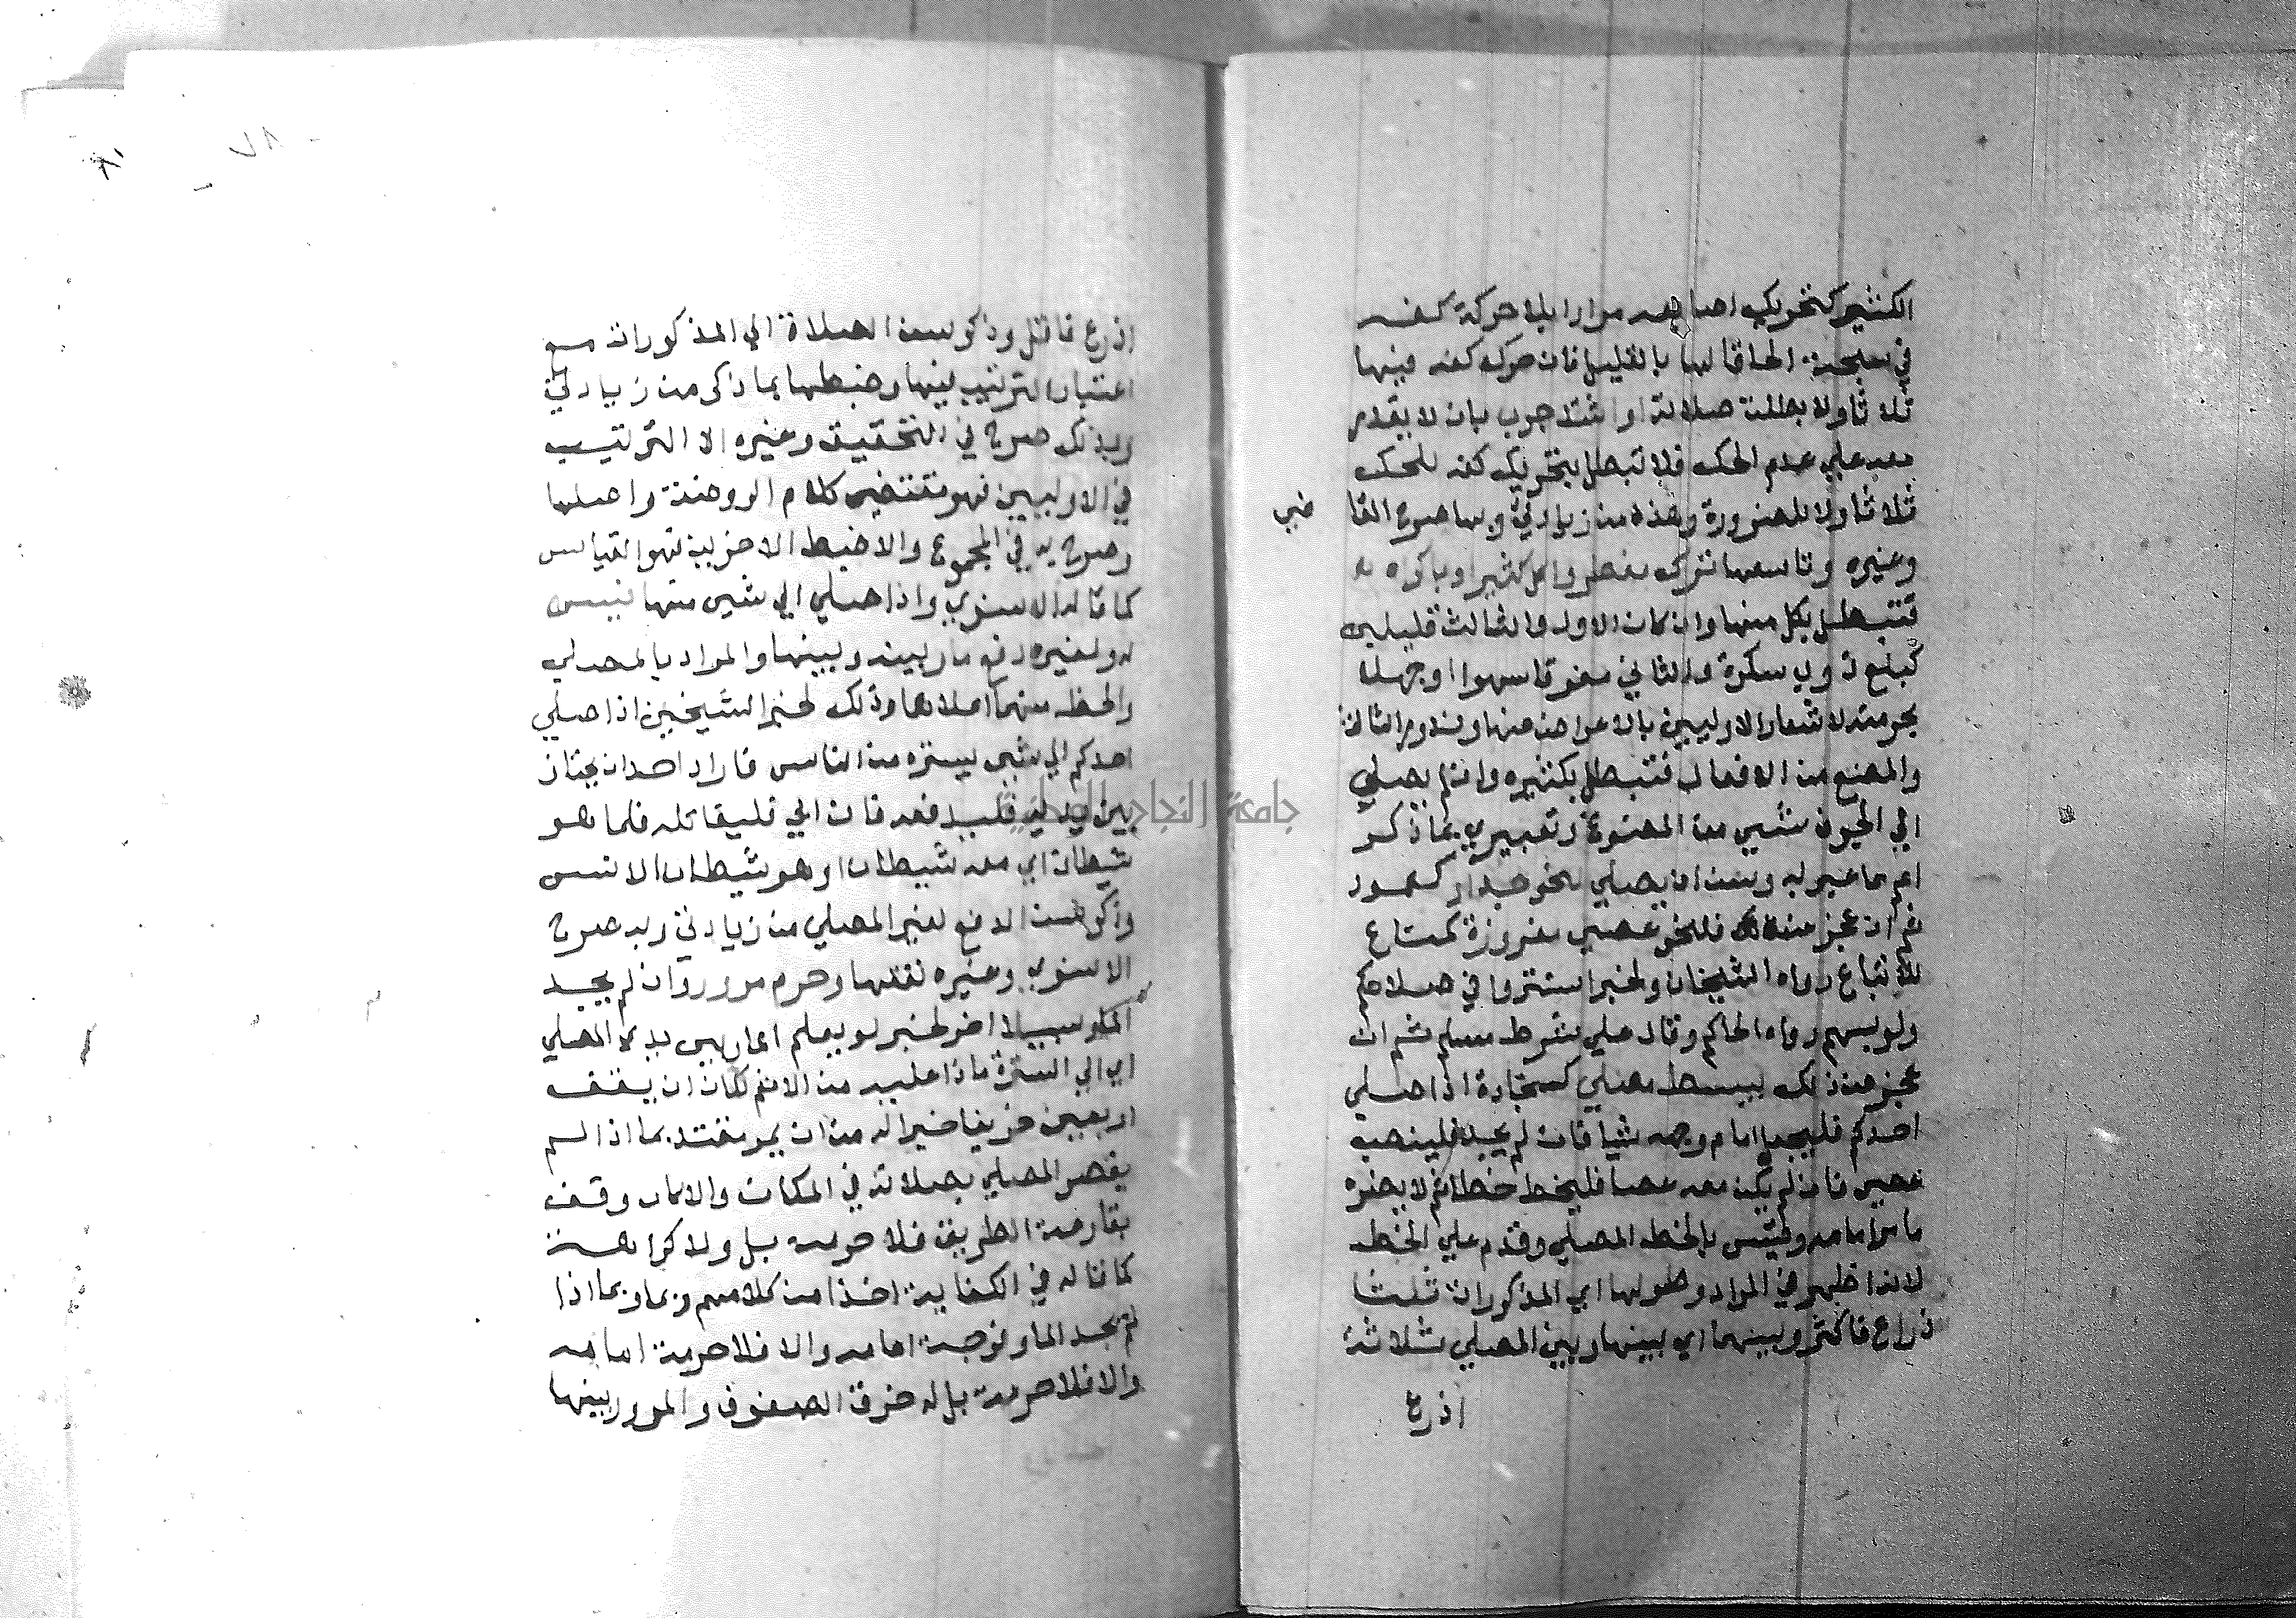 الكثير كتحريك اصابعه مرارا بلا حركة كفه
في سبحة الحاقا لها بالقليل فان حرك كفه فيها
ثلاثا ولا بطلت صلاته او اشتد جرب بان لا يقدر
معه علي عدم الحك فلا تبطل بتحريك كفه للحك
ثلاثا ولا للضرورة وهذه من زيادتي وبها صرح القا ضي
وغيره وتاسعها ترك مفطر واكل كثير او باكراه
فتبطل بكل منها وان كان الاول والثالث قليلين
كبلع ذوب سكرة والثاني مفرقا سهوا او جهلا
بحرمته لاشعار الاوليين بالاعراض عنها وندور الثالث
والمضغ من الافعال فتبطل بكثيره وان لم يصل
الي الجوف شيء من الممضوغ وتعبيري بما ذكر
اعم مما عبر به وسن ان يصلي لنحو جدار كعمود
ثم ان عجز عنه فلنحو عصي مغروزة كمتاع
للاتباع رواه الشيخان ولخبر استتروا في صلاتكم
ولو بسهم رواه الحاكم وقال علي شرط مسلم ثم ان
عجز عن ذلك يبسط مصلي كسجادة اذا صلي
احدكم فليجعل امام وجهه شيا فان لم يجد فلينصب
عصي فان لم يكن معه عصا فليخط خطا ثم لا يضره
ما مر امامه وقيس بالخط المصلي وقدم علي الخط
لانه اظهر في المراد وطولها اي المذكورات ثلثا
ذراع فاكثر وبينهما اي بينها وبين المصلي ثلاثة
اذرع
اذرع فاقل وذكر سن الصلاة الي المذكورات مع
اعتبار الترتيب بينها وضبطها بما ذكر من زيادتي
وبذلك صرح في التحقيق وغيره الا الترتيب
في الاوليين فهو مقتضي كلام الروضة واصلها
وصرح به في المجموع والا ضبط الاخريين فهو القياس
كما قاله الاسنوي واذا صلي الي شيء منها فيسن
له ولغيره دفع مار بينه وبينها والمراد بالمصلي
والخط منهما اعلاهما وذلك لخبر الشيخين اذا صلي
احدكم الي شي يستره من الناس فاراد احد ان يجتاز
بين يديه فليدفعه فان ابي فليقاتله فانما هو
شيطان اي معه شيطان او هو شيطان الانس
وذكر سن الدفع لغير المصلي من زيادتي وبه صرح
الاسنوي وغيره تفقها وحرم مرور وان لم يجد
المار سبيلا اخر لخبر لو يعلم المار بين يدي المصلي
اي الي السترة ماذا عليه من الاثم لكان ان يقف
اربعين خريفا خيرا له من ان يمر مقيد بما اذا لم
يقصر المصلي بصلاته في المكان والا كان وقف
بقارعة الطريق فلا حرمة بل ولا كراهة
كما قاله في الكفاية اخذا من كلامهم وبما اذا
لم يجد المار فرجة امامه والا فلا حرمة امامه
والا فلا حرمة بل له خرق الصفوف والمرور بينها
جامعة النجاح الوطنية